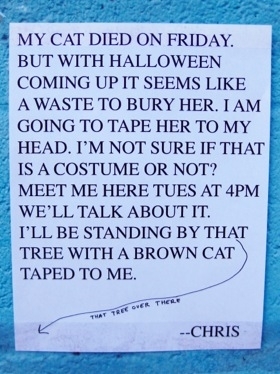 MY CAT DIED ON FRIDAY.
BUT WITH HALLOWEEN
COMING UP IT SEEMS LIKE
A WASTE TO BURY HER. I AM
GOING TO TAPE HER TO MY
HEAD. I'M NOT SURE IF THAT
IS A COSTUME OR NOT?
MEET ME HERE TUES AT 4PM
WE'LL TALK ABOUT IT.
I'LL BE STANDING BY THAT
TREE WITH A BROWN CAT
TAPED TO ME.
THAT TREE OVER THERE
--CHRIS